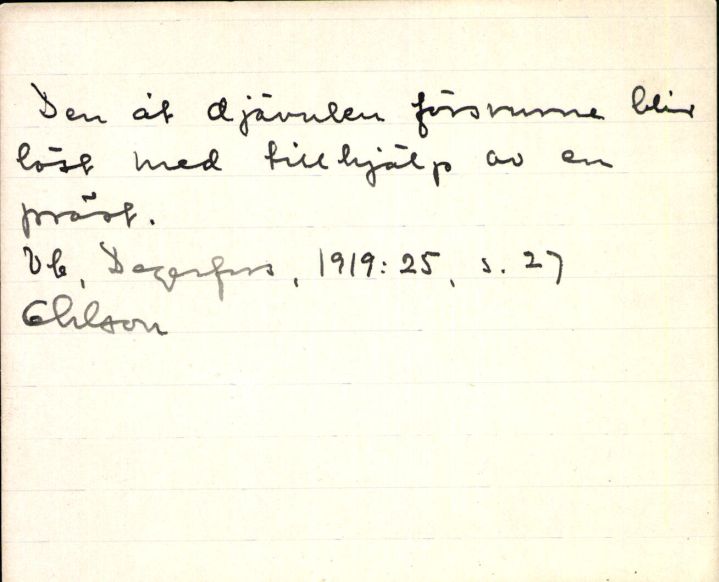 Den åt djävulen försvurne blir
löst med tillhjälp av en
präst.
Vb, Degerfors, 1919:25, s. 27
Ehlson